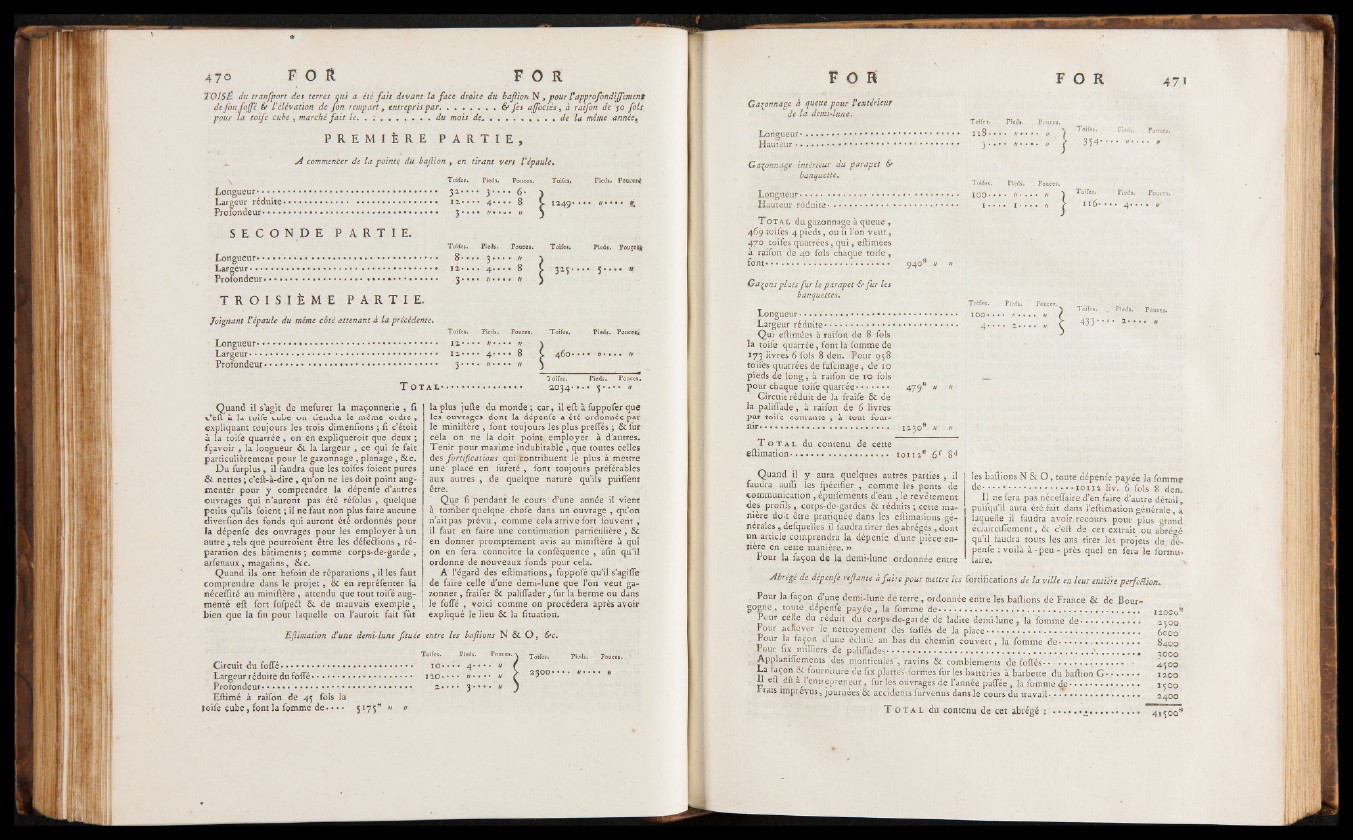 470 FOR FOR
TOISÉ du tranſport des terres qui a été fait devant la face droite du baſtion N , pour l'approfondiſſement
de ſon foſſé & l'élévation de ſon rempart , entrepris par. . . . . . . . & ſes aſſociés, à raiſon de 50 ſols
pour la toiſe cube , marché fait le. . : . . . . . . . du mois de. . . . . . . . . . de la même année.
PREMIÈRE PARTIE,
A commencer de la pointe du baſtion , en tirant vers l'épaule.
Toiſes. Pieds. Pouces. Toiſes. Pieds. Pouces.
Longueur . . . . 32 . . . . 3 . . . . 6.
Largeur réduite . . . . 12 . . . . 4 . . . . 8 } 1249 . . . . " . . . . "
Profondeur . . . . 3 . . . . " . . . . "
SECONDE PARTIE.
Toiſes. Pieds. Pouces. Toiſes. Pieds. Pouces.
Longueur . . . . 8 . . . . 3 . . . . "
Largeur . . . . 12 . . . . 4 . . . . 8 } 325 . . . . 5 . . . . "
Profondeur . . . . 3 . . . . " . . . . "
TROISIÈME PARTIE.
Joignant l'épaule du même côté attenant à la précédente.
Toiſes. Pieds. Pouces. Toiſes. Pieds. Pouces.
Longueur . . . . 12 . . . . " . . . . "
Largeur . . . . 12 . . . . 4 . . . . 8 } 460 . . . . " . . . . "
Profondeur . . . . 3 . . . . " . . . . "
Toiſes. Pieds. Pouces.
TOTAL . . . . 2034 . . . . 5 . . . . "
Quand il s'agit de meſurer la maçonnerie , ſi
c'eſt à la toiſe cube on tiendra le même ordre ,
expliquant toujours les trois dimenſions ; ſi c'étoit
à la toiſe quarrée , on en expliqueroit que deux ;
ſçavoir , la longueur & la largeur , ce qui ſe fait
particulièrement pour le gazonnage , planage , &c.
Du ſurplus , il faudra que les toiſes ſoient pures
& nettes ; c'eſt-à-dire , qu'on ne les doit point aug-
menter pour y comprendre la dépenſe d'autres
ouvrages qui n'auront pas été réſolus , quelque
petits qu'ils ſoient ; il ne faut non plus faire aucune
diverſion des fonds qui auront été ordonnés pour
la dépenſe des ouvrages pour les employer à un
autre , tels que pourroient être les défections , ré-
paration des bâtiments ; comme corps-de-garde ,
arſenaux , magaſins , &c.
Quand ils ont beſoin de réparations , il les faut
comprendre dans le projet , & en repréſenter la
néceſſité au miniſtère , attendu que tout toiſé aug-
menté eſt fort ſuſpect & de mauvais exemple ,
bien que la fin pour laquelle on l'auroit fait fût
la plus juſte du monde ; car, il eſt à ſuppoſer que
les ouvrages dont la dépenſe a été ordonnée par
le miniſtère , ſont toujours les plus preſſés ; & ſur
cela on ne la doit point employer à d'autres.
Tenir pour maxime indubitable , que toutes celles
des fortifications qui contribuent le plus à mettre
une place en ſureté , ſont toujours préférables
aux autres , de quelque nature qu'ils puiſſent
être.
Que ſi pendant le cours d'une année il vient
à tomber quelque choſe dans un ouvrage , qu'on
n'ait pas prévu , comme cela arrive fort ſouvent ,
il faut en faire une continuation particulière , &
en donner promptement avis au miniſtère à qui
on en fera connoître la conſéquence , afin qu'il
ordonne de nouveaux fonds pour cela.
A l'égard des eſtimations, ſuppoſé qu'il s'agiſſe
de faire celle d'une demi-lune que l'on veut ga-
zonner , fraiſer & paliſſader , ſur la berme ou dans
le foſſé , voici comme on procédera après avoir
expliqué le lieu & la ſituation.
Eſtimation d'une demi-lune ſituée entre les baſtions N & O, &c.
Toiſes. Pieds. Pouces. Toiſes. Pieds. Pouces.
Circuit du foſſé . . . . 10 . . . . 4 . . . . "
Largeur réduite du foſſé . . . . 120 . . . . " . . . . " } 2300 . . . . " . . . . "
Profondeur . . . . 2 . . . . 3 . . . . "
Eſtimé à raiſon de 45 ſols la
toiſe cube, font la ſomme de . . . . 5175# " "
FOR FOR 471
Gazonnage à queue pour l'extérieur
de la demi-lune.
Toiſes. Pieds. Pouces.
Longueur . . . . 118 . . . . " . . . . " } Toiſes. Pieds. Pouces.
Hauteur . . . . 3 . . . . " . . . . " } 354 . . . . " . . . . "
Gazonnage intérieur du parapet &
banquette.
Toiſes. Pieds. Pouces.
Longueur . . . . 100 . . . . " . . . . " } Toiſes. Pieds. Pouces.
Hauteur réduite . . . . 1 . . . . 1 . . . . " } 116 . . . . 4 . . . . "
TOTAL du gazonnage à queue ,
469 toiſes 4 pieds, ou ſi l'on veut,
470 toiſes quarrées, qui , eſtimées
à raiſon de 40 ſols chaque toiſe ,
font . . . . 940# " "
Gazons plats ſur le parapet & ſur les
banquettes.
Toiſes. Pieds. Pouces.
Longueur . . . . 100 . . . . " . . . . " } Toiſes. Pieds. Pouces.
Largeur réduite . . . . 4 . . . . 2 . . . . " } 433 . . . . 2 . . . . "
Qui eſtimées à raiſon de 8 ſols
la toiſe quarrée, font la ſomme de
173 livres 6 ſols 8 den. Pour 958
toiſes quarrées de faſcinage , de 10
pieds de long, à raiſon de 10 ſols
pour chaque toiſe quarrée . . . . 479# " "
Circuit réduit de la fraiſe & de
la paliſſade , à raiſon de 6 livres
par toiſe courante , à tout four-
nir . . . . 1230# " "
TOTAL du contenu de cette
eſtimation . . . . 10112# 6ſ 8d
Quand il y aura quelques autres parties , il
faudra auſſi les ſpécifier , comme les ponts de
communication , épuiſements d'eau , le revêtement
des profils , corps-de-gardes & réduits ; cette ma-
nière doit être pratiquée dans les eſtimations gé-
nérales , deſquelles il faudra tirer des abrégés , dont
un article comprendra la dépenſe d'une pièce en-
tière en cette manière. »
Pour la façon de la demi-lune ordonnée entre
les baſtions N & O, toute dépenſe payée la ſomme
de . . . . 10112 liv. 6 ſols 8 den.
Il ne ſera pas néceſſaire d'en faire d'autre détail,
puiſqu'il aura été fait dans l'eſtimation générale, à
laquelle il faudra avoir recours pour plus grand
éclairciſſement , & c'eſt de cet extrait ou abrégé
qu'il faudra touts les ans tirer les projets de dé-
penſe : voilà à-peu-près quel en ſera le formu-
laire.
Abrégé de dépenſe reſtante à faire pour mettre les fortifications de la ville en leur entière perfection.
Pour la façon d'une demi-lune de terre, ordonnée entre les baſtions de France & de Bour-
gogne , toute dépenſe payée , la ſomme de . . . . 12000#
Pour celle du réduit du corps-de-garde de ladite demi-lune , la ſomme de . . . . 2500
Pour achever le nettoyement des foſſés de la place . . . . 6000
Pour la façon d'une écluſe au bas du chemin couvert, la ſomme de . . . . 8400
Pour ſix milliers de paliſſades . . . . 3000
Applaniſſements des monticules , ravins & comblements de foſſés . . . . 4500
La façon & fourniture de ſix plattes-formes ſur les batteries à barbette du baſtion G . . . . 1200
Il eſt dû à l'entrepreneur , ſur les ouvrages de l'année paſſée , la ſomme de . . . . 1500
Frais imprévus, journées & accidents ſurvenus dans le cours du travail . . . . 2400
TOTAL du contenu de cet abrégé : . . . . 41500#